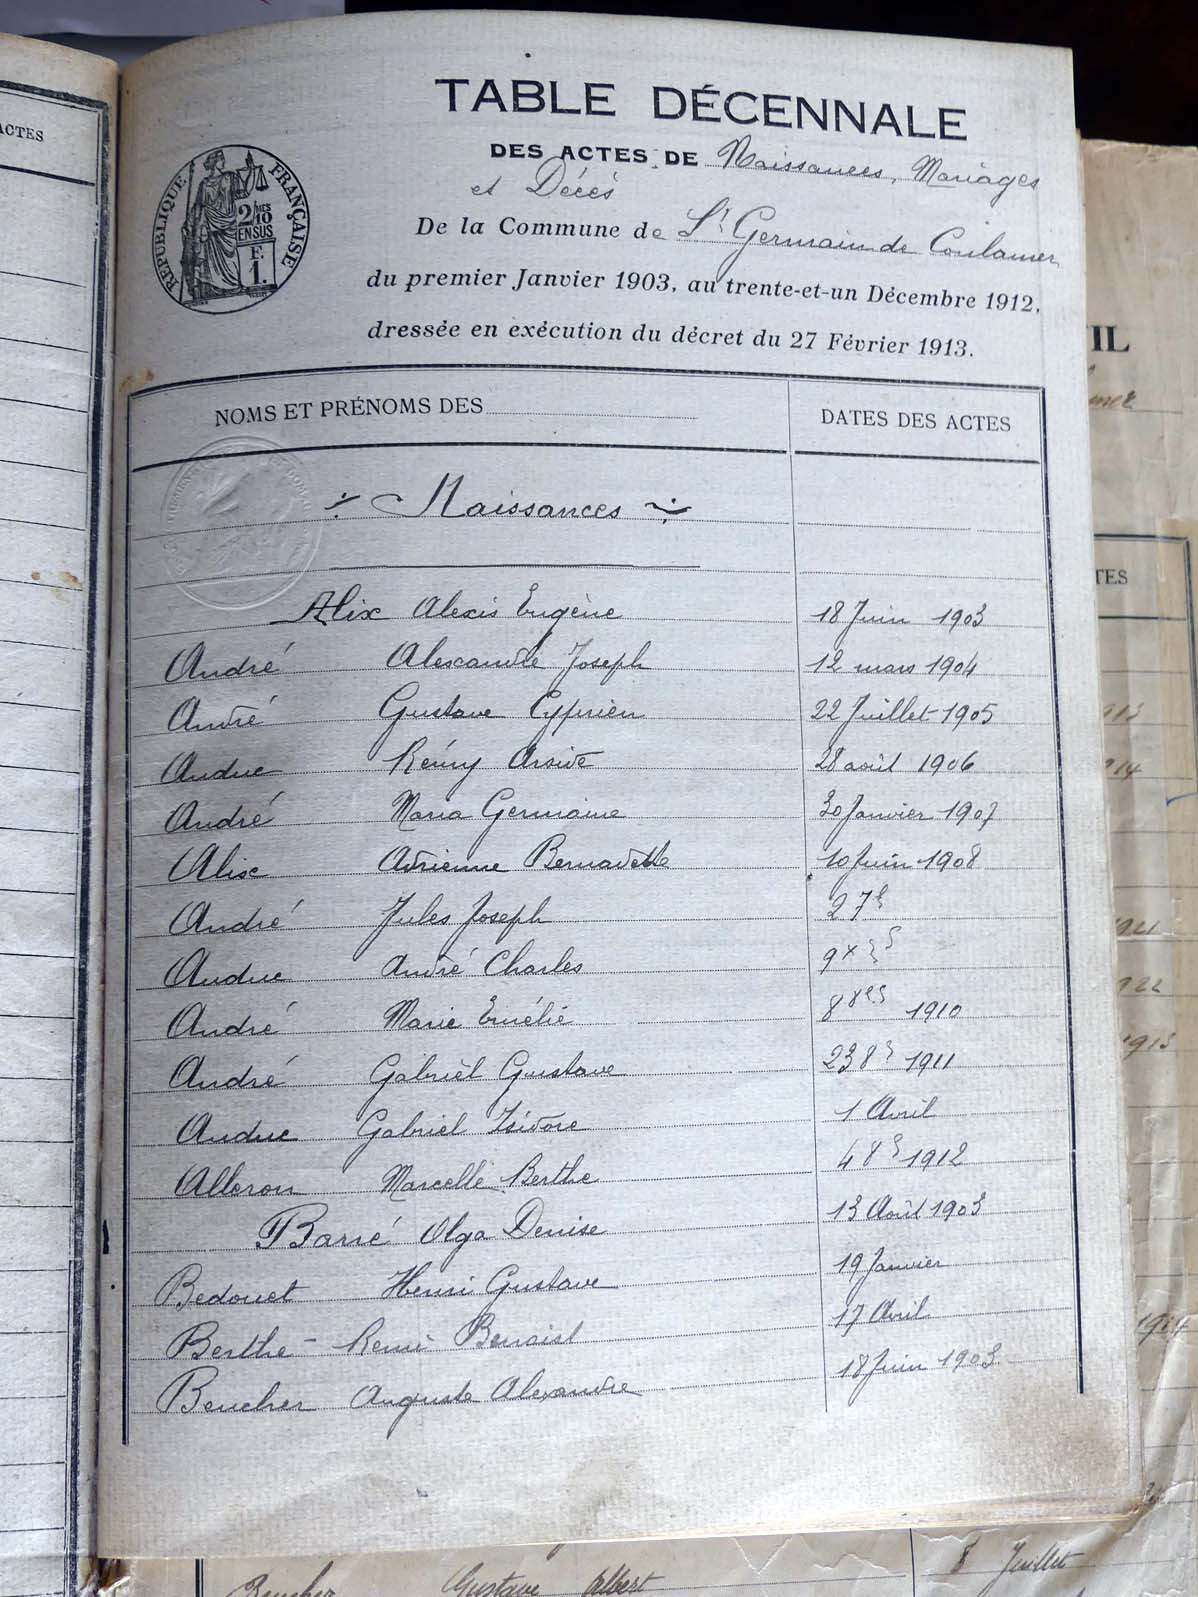 ACTES
TABLE DÉCENNALE
DES ACTES DE Naissances, Mariages
et Décès
De la Commune de St Germain de Coulamer
du premier Janvier 1903, au trente-et-un Décembre 1912,
dressée en exécution du décret du 27 Février 1913.
RÉPUBLIQUE FRANÇAISE
2/10 MES
EN SUS
F.
1.
NOMS ET PRÉNOMS DES
DATES DES ACTES
Naissances
Alix Alexis Eugène 18 Juin 1903
André Alexandre Joseph 12 mars 1904
André Gustave Cyprien 22 Juillet 1905
Andue Rémy 28 août 1906
André Maria Germaine 30 Janvier 1907
Alix Adrienne Bernadette 10 Juin 1908
André Jules Joseph 27
Andue André Charles 9
André Marie Emélie 8 1910
André Gabriel Gustave 23 8 1911
Andue Gabriel Isidore 1 Avril
Alleron Marcelle Berthe 4 8 1912
Barré Olga Denise 13 Août 1903
Bedouet Henri Gustave 19 Janvier
Berthe - Remi Benoist 17 Avril
Beucher Auguste Alexandre 18 Juin 1903
IL
TES
1914
1922
1913
1914
Beucher Gustave Albert 8 Juillet